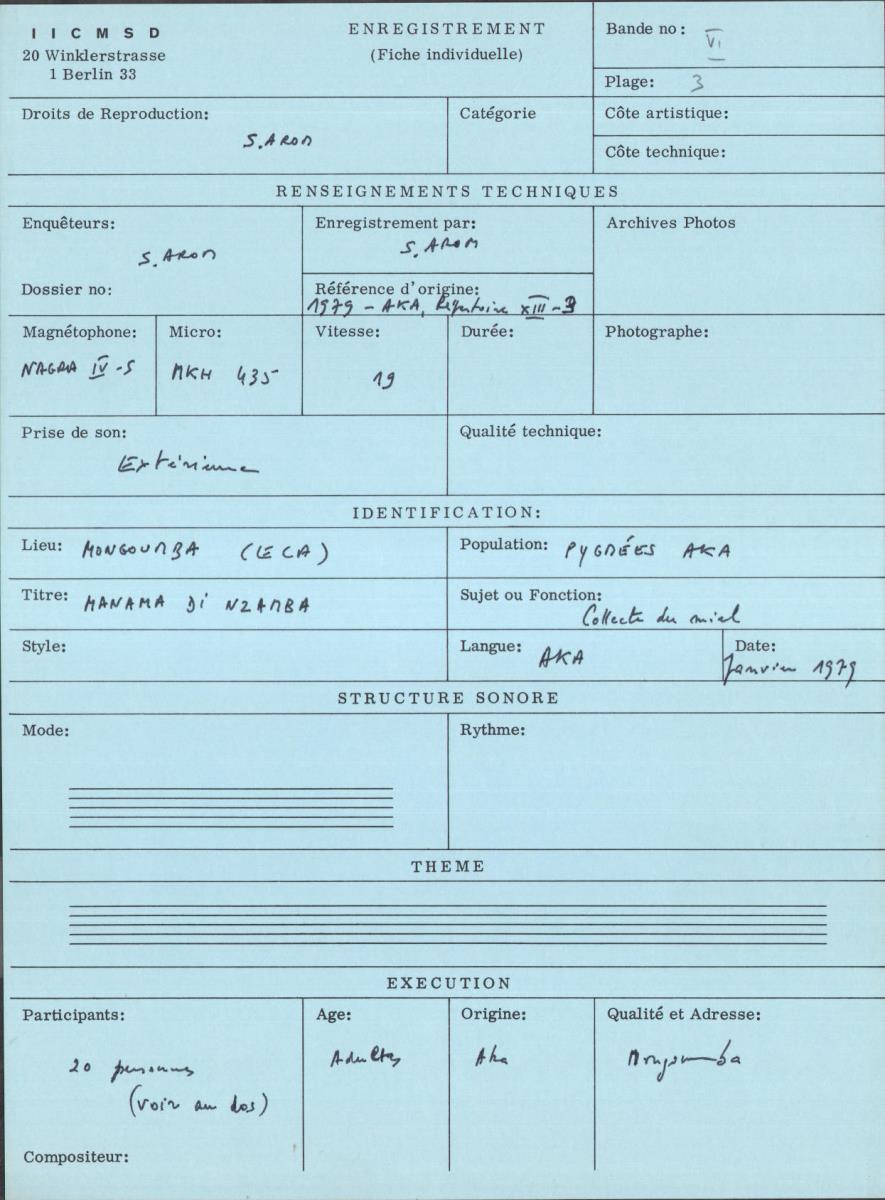 I I C M S D
20 Winklerstrasse
1 Berlin 33
ENREGISTREMENT
(Fiche individuelle)
Bande no: VI
Plage: 3
Droits de Reproduction:
S. AROM
Catégorie
Côte artistique:
Côte technique:
RENSEIGNEMENTS TECHNIQUES
Enquêteurs:
S. AROM
Dossier no:
Enregistrement par:
S. AROM
Référence d'origine:
1979 - AKA, Répertoire XIII-
Archives Photos
Magnétophone:
NAGRA IV-S
Micro:
MKH 435
Vitesse:
19
Durée:
Photographe:
Prise de son:
Extérieure
Qualité technique:
IDENTIFICATION:
Lieu: MONGOUMBA (LE CA)
Population: PYGMÉES AKA
Titre: MANAMA DI NZAMBA
Sujet ou Fonction:
Collecte du miel
Style:
Langue: AKA
Date:
Janvier 1979
STRUCTURE SONORE
Mode:
Rythme:
THEME
EXECUTION
Participants:
20 personnes
(voir au dos)
Age:
Adultes
Origine:
Aka
Qualité et Adresse:
Mongoumba
Compositeur: